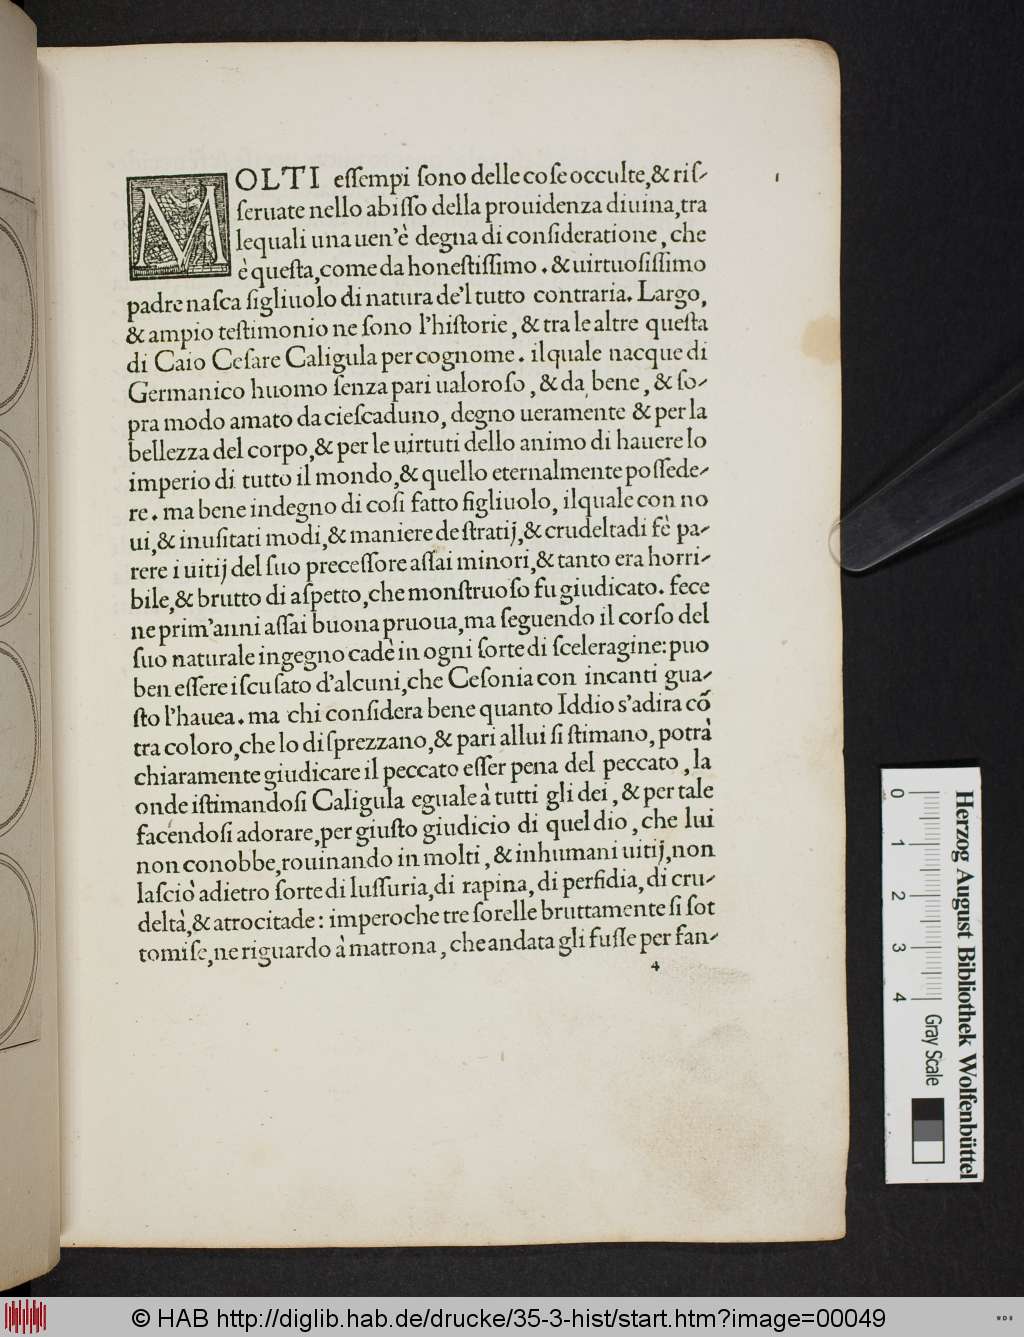 MOLTI eſſempi ſono delle coſe occulte,& riſ-
ſeruate nello abiſſo della prouidenza diuina, tra
lequali una uen'è degna di conſideratione, che
è queſta, come da honeſtiſſimo. & uirtuoſiſſimo
padre naſca figliuolo di natura de'l tutto contraria. Largo,
& ampio teſtimonio ne ſono l'hiſtorie, & tra le altre queſta
di Caio Ceſare Caligula per cognome. ilquale nacque di
Germanico huomo ſenza pari ualoroſo, & da bene, & ſo-
pra modo amato da cieſcaduno, degno ueramente & per la
bellezza del corpo, & per le uirtuti dello animo di hauere lo
imperio di tutto il mondo, & quello eternalmente poſſede-
re. ma bene indegno di coſi fatto figliuolo, ilquale con no
ui, & inuſitati modi, & maniere de ſtratij, & crudeltadi fè pa-
rere i uitij del ſuo preceſſore aſſai minori, & tanto era horri-
bile, & brutto di aſpetto, che monſtruoſo fu giudicato. fece
ne prim'anni aſſai buona pruoua, ma ſeguendo il corſo del
ſuo naturale ingegno cadè in ogni ſorte di ſceleragine: puo
ben eſſere iſcuſato d'alcuni, che Ceſonia con incanti gua-
ſto l'hauea. ma chi conſidera bene quanto Iddio s'adira cõ
tra coloro, che lo diſprezzano, & pari allui ſi ſtimano, potrà
chiaramente giudicare il peccato eſſer pena del peccato, la
onde iſtimandoſi Caligula eguale à tutti gli dei, & per tale
facendoſi adorare, per giuſto giudicio di quel dio, che lui
non conobbe, rouinando in molti, & inhumani uitij, non
laſciò adietro ſorte di luſſuria, di rapina, di perfidia, di cru-
deltà, & atrocitade: imperoche tre ſorelle bruttamente ſi ſot
tomiſe, ne riguardo à matrona, che andata gli fuſſe per fan-
4
0 1 2 3 4
Gray Scale
Herzog August Bibliothek Wolfenbüttel
© HAB http://diglib.hab.de/drucke/35-3-hist/start.htm?image=00049